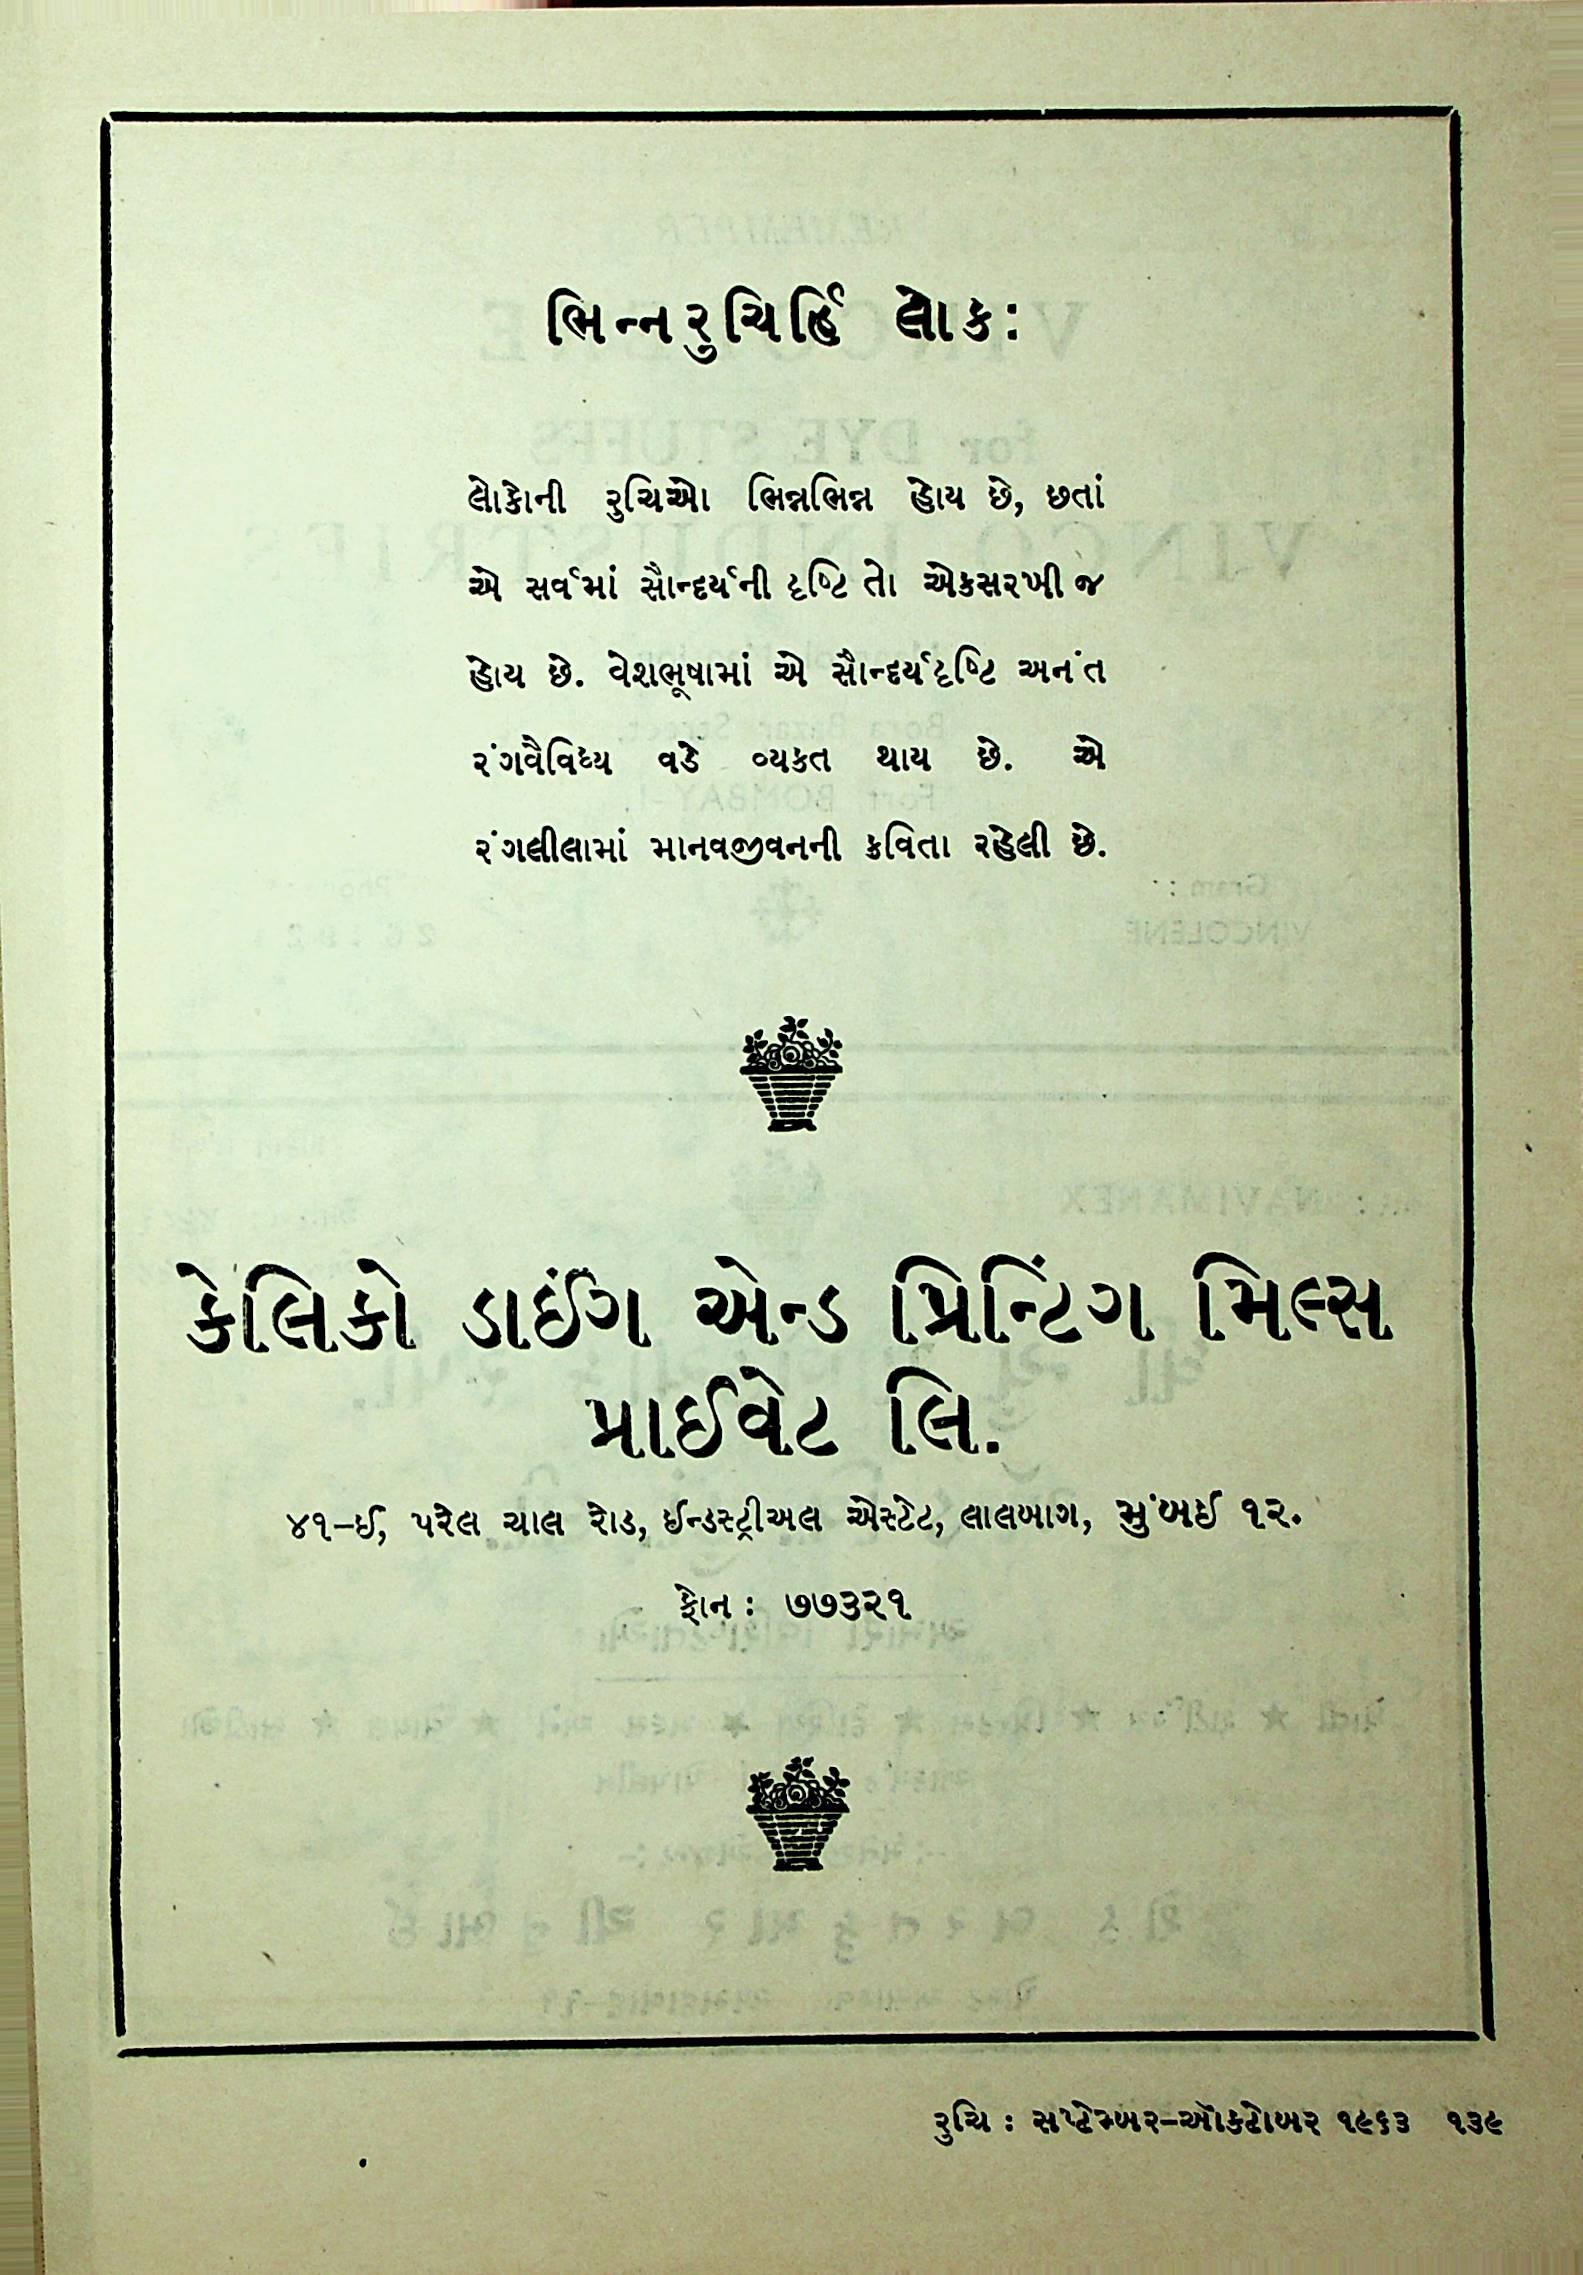 ભિન્નરુચિર્હિ લોકઃ
લોકોની રુચિઓ ભિન્નભિન્ન હોય છે, છતાં
એ સર્વમાં સૌન્દર્યની દૃષ્ટિ તો એકસરખી જ
હોય છે. વેશભૂષામાં એ સૌન્દર્યદૃષ્ટિ અનંત
રંગવૈવિધ્ય વડે વ્યકત થાય છે. એ
રંગલીલામાં માનવજીવનની કવિતા રહેલી છે.
કેલિકો ડાઈંગ એન્ડ પ્રિન્ટિંગ મિલ્સ
પ્રાઈવેટ લિ.
૪૧–ઈ, પરેલ ચાલ રોડ, ઈન્ડસ્ટ્રીઅલ એસ્ટેટ, લાલબાગ, મુંબઈ ૧૨.
ફોન : ૭૭૩૨૧
રુચિ : સપ્ટેમ્બર–ઑકટોબર ૧૯૬૩ ૧૩૯